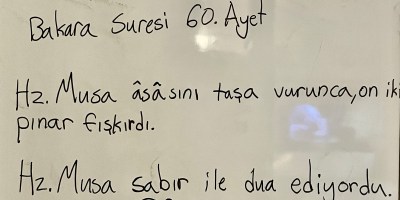 Bakara Suresi 60. Ayet
Hz. Musa âsâsını taşa vurunca, on iki
pınar fışkırdı.
Hz. Musa sabır ile dua ediyordu.